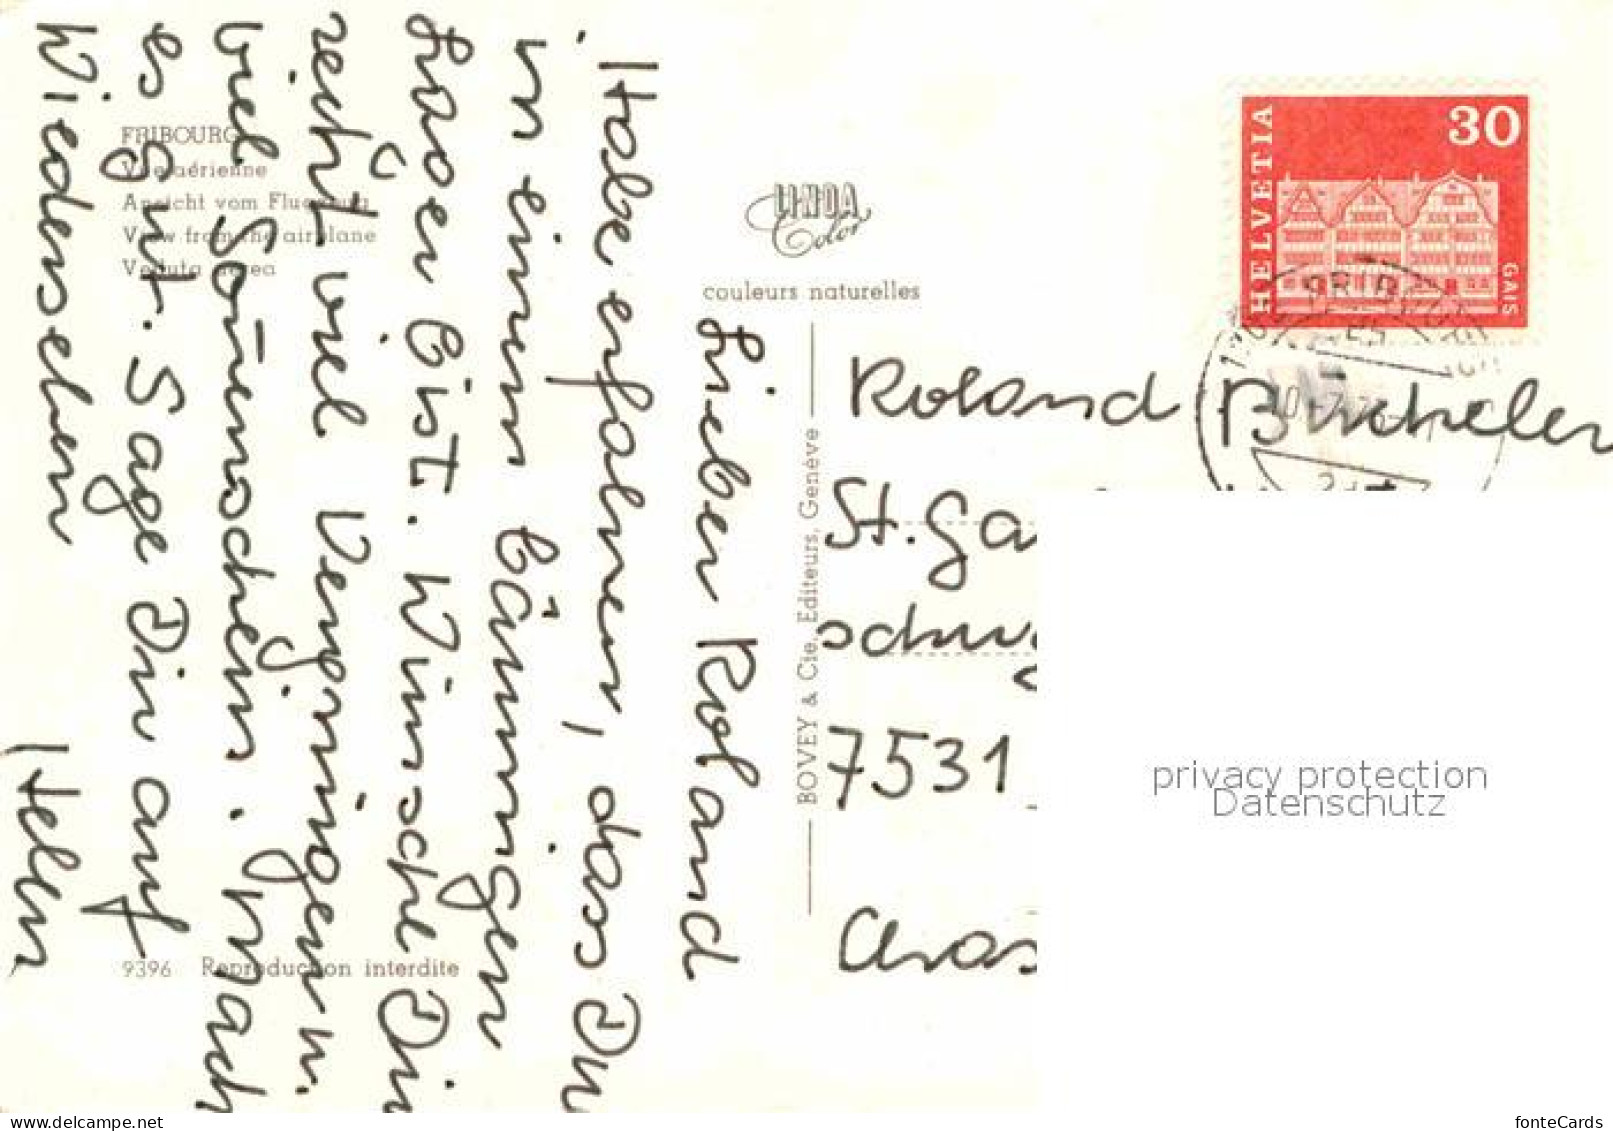 FRIBOURG
Vue aérienne
Ansicht vom Flugzeug
View from the airplane
Veduta aerea
9396 Reproduction interdite
LINDA
Color
couleurs naturelles
BOVEY & Cie, Editeurs, Genève
Lieber Roland
Habe erfahren, dass Du
in einem bäumigen
Lager bist. Wünsche Dir
recht viel Vergnügen u.
viel Sonnenschein. Mach
es gut. Sage Dir auf
Wiedersehen
Hellen
HELVETIA
30
GAIS
Roland Bücheler
St. Ga
schu
7531
privacy protection
Datenschutz
www.ak-ansichtskarten.de
fonteCards